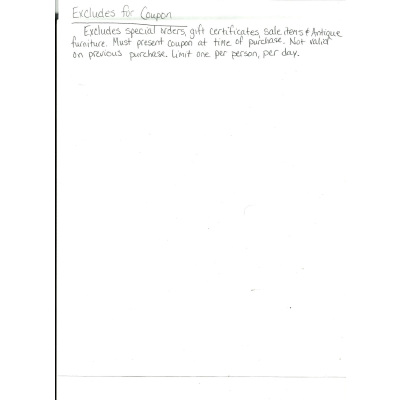 Excludes for Coupon
Excludes special orders, gift certificates, sale items & Antique
furniture. Must present coupon at time of purchase. Not valid
on previous purchase. Limit one per person, per day.